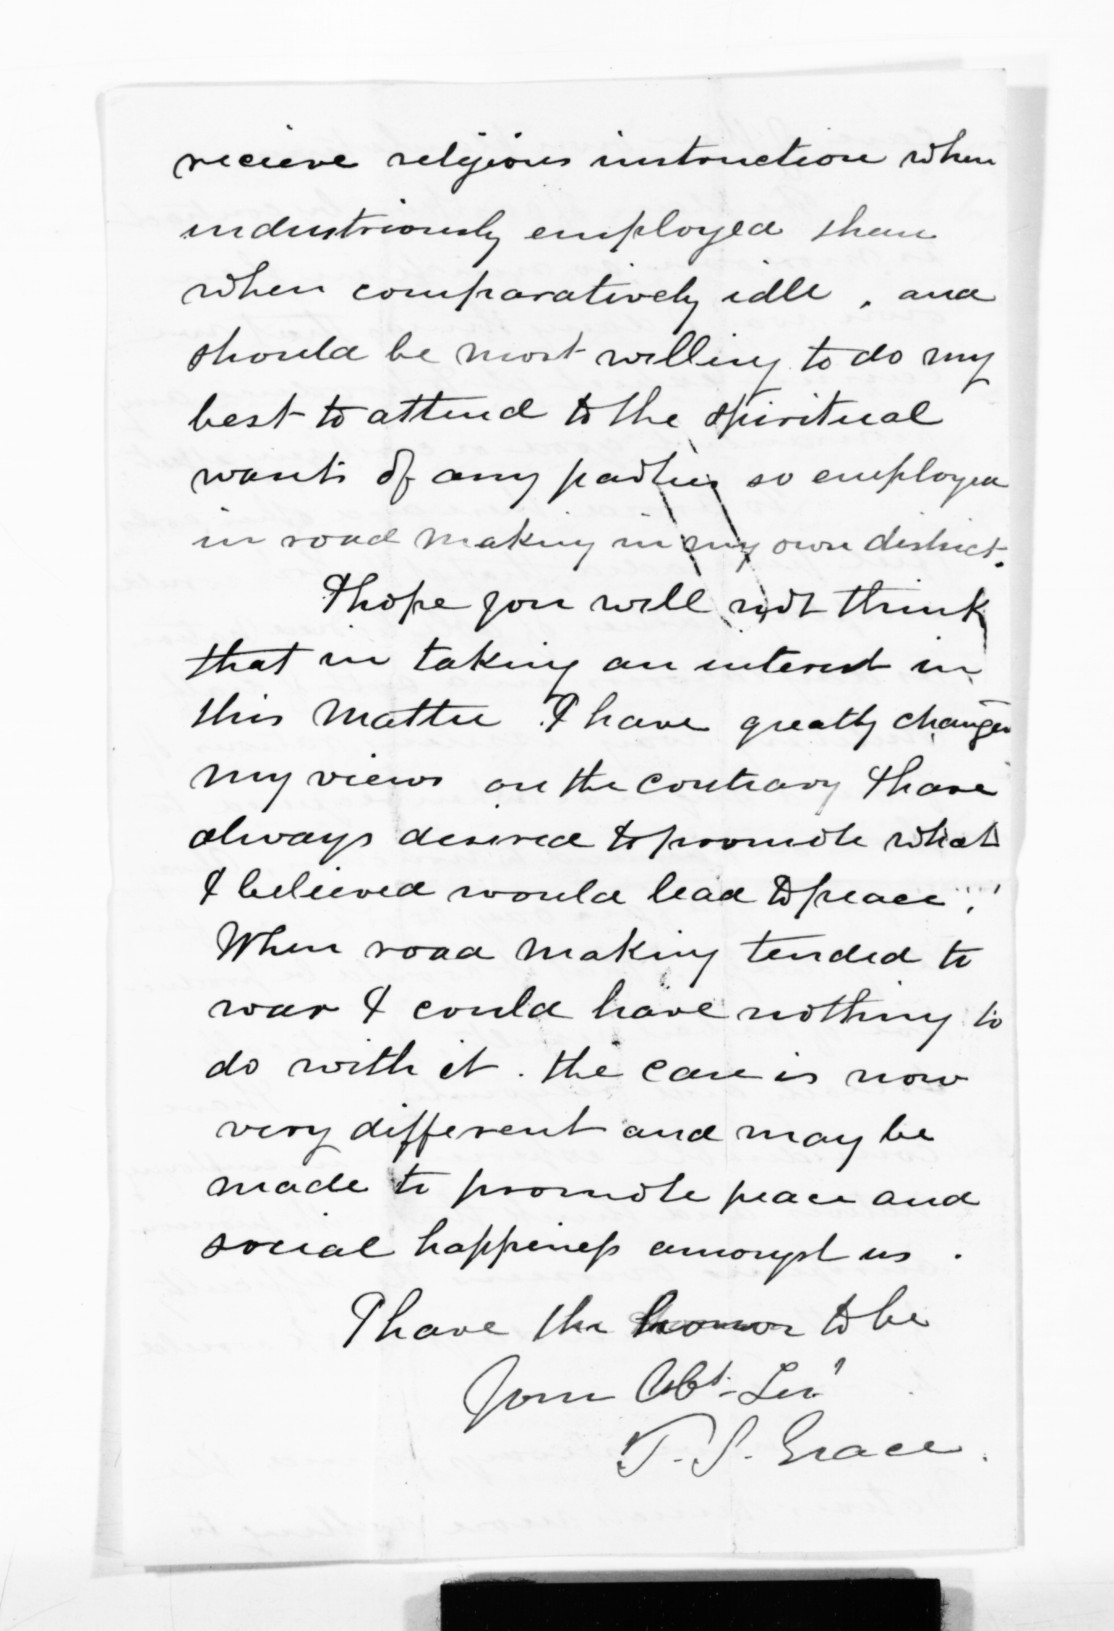 recieve religious instruction when
industriously employed than
when comparatively idle, and
should be most willing to do my
best to attend to the spiritual
wants of any parties so employed
in road making in my own district.
I hope you will not think
that in taking an interest in
this matter I have greatly changed
my views on the contrary I have
always desired to promote what
I believed would lead to peace.
When road making tended to
war I could have nothing to
do with it. the case is now
very different and may be
made to promote peace and
social happiness amongst us.
I have the honor to be
Your Obt. Sert
T. S. Grace.